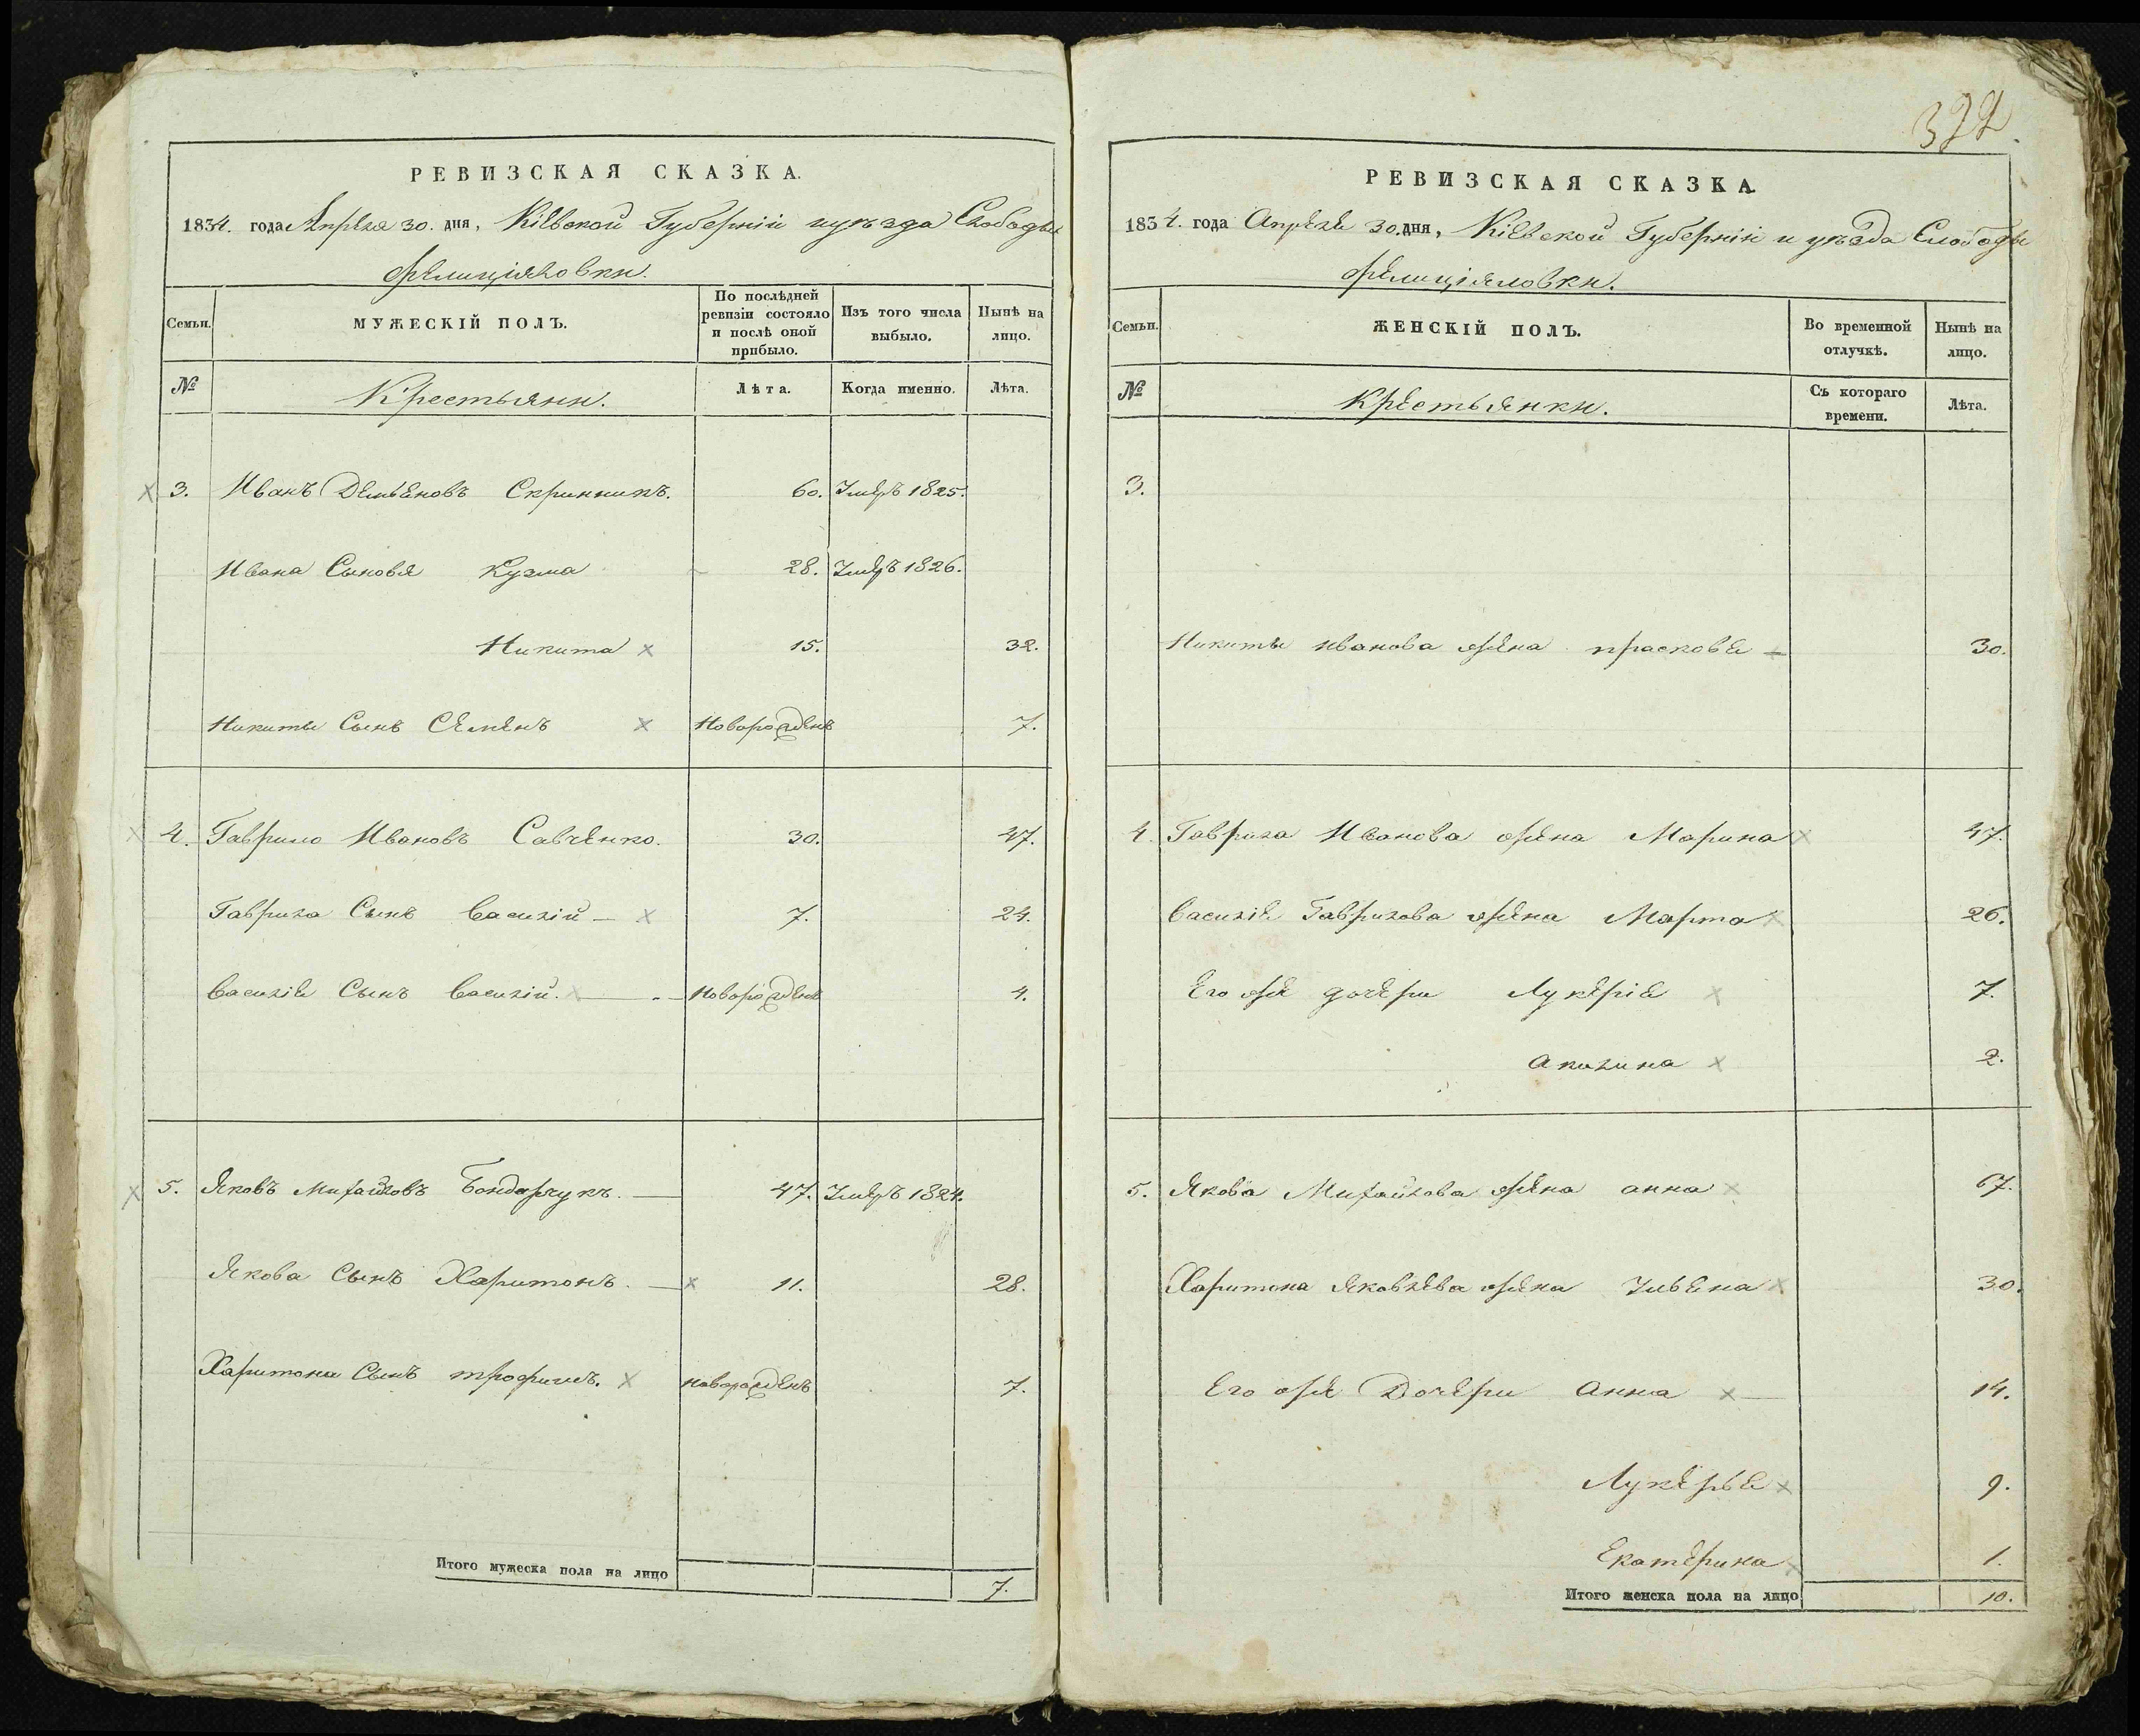 РЕВИЗСКАЯ СКАЗКА.
1834. года Апреля 30. дня, Кіевской Губерніи и уезда Слободы
Фелиціяловки.
Семьи.
МУЖЕСКІЙ ПОЛЪ.
По послѣдней ревизіи состояло и послѣ оной прибыло.
Изъ того числа выбыло.
Нынѣ на лицо.
№ Крестьяни. Лѣта. Когда именно. Лѣта.
3. Иванъ Демьеновъ Скринникъ. 60. Умеръ 1825.
Ивана Сыновя Кузма 28. Умеръ 1826.
Никита 15. 32.
Никиты Сынъ Семенъ Новорожденъ 7.
4. Гаврило Ивановъ Савченко. 30. 47.
Гаврила Сынъ Василій 7. 24.
Василіе Сынъ Василій. Новорожденъ 4.
5. Яковъ Михайловъ Бондарчукъ. 47. Умеръ 1824.
Якова Сынъ Харитонъ. 11. 28.
Харитона Сынъ трофимъ. новорожденъ 7.
Итого мужеска пола на лицо 7.
322.
РЕВИЗСКАЯ СКАЗКА
1834. года Апреле 30. дня, Кіевской Губерніи и уезда Слободы
Фелиціяловки.
Семьи.
ЖЕНСКІЙ ПОЛЪ.
Во временной отлучкѣ.
Нынѣ на лицо.
№ Крестьянки. Съ котораго времени. Лѣта.
3.
Никиты иванова жена прасковε 30.
4. Гаврила Иванова жена Марина 47.
Василіе Гаврилова жена Марта 26.
Его же дочери Лукеріе 7.
Акилина 2.
5. Якова Михайлова жена анна 67.
Харитона Яковлева жена Ульена 30.
Его же Дочери Анна 14.
Лукерье 9.
Екатерина 1.
Итого женска пола на лицо 10.